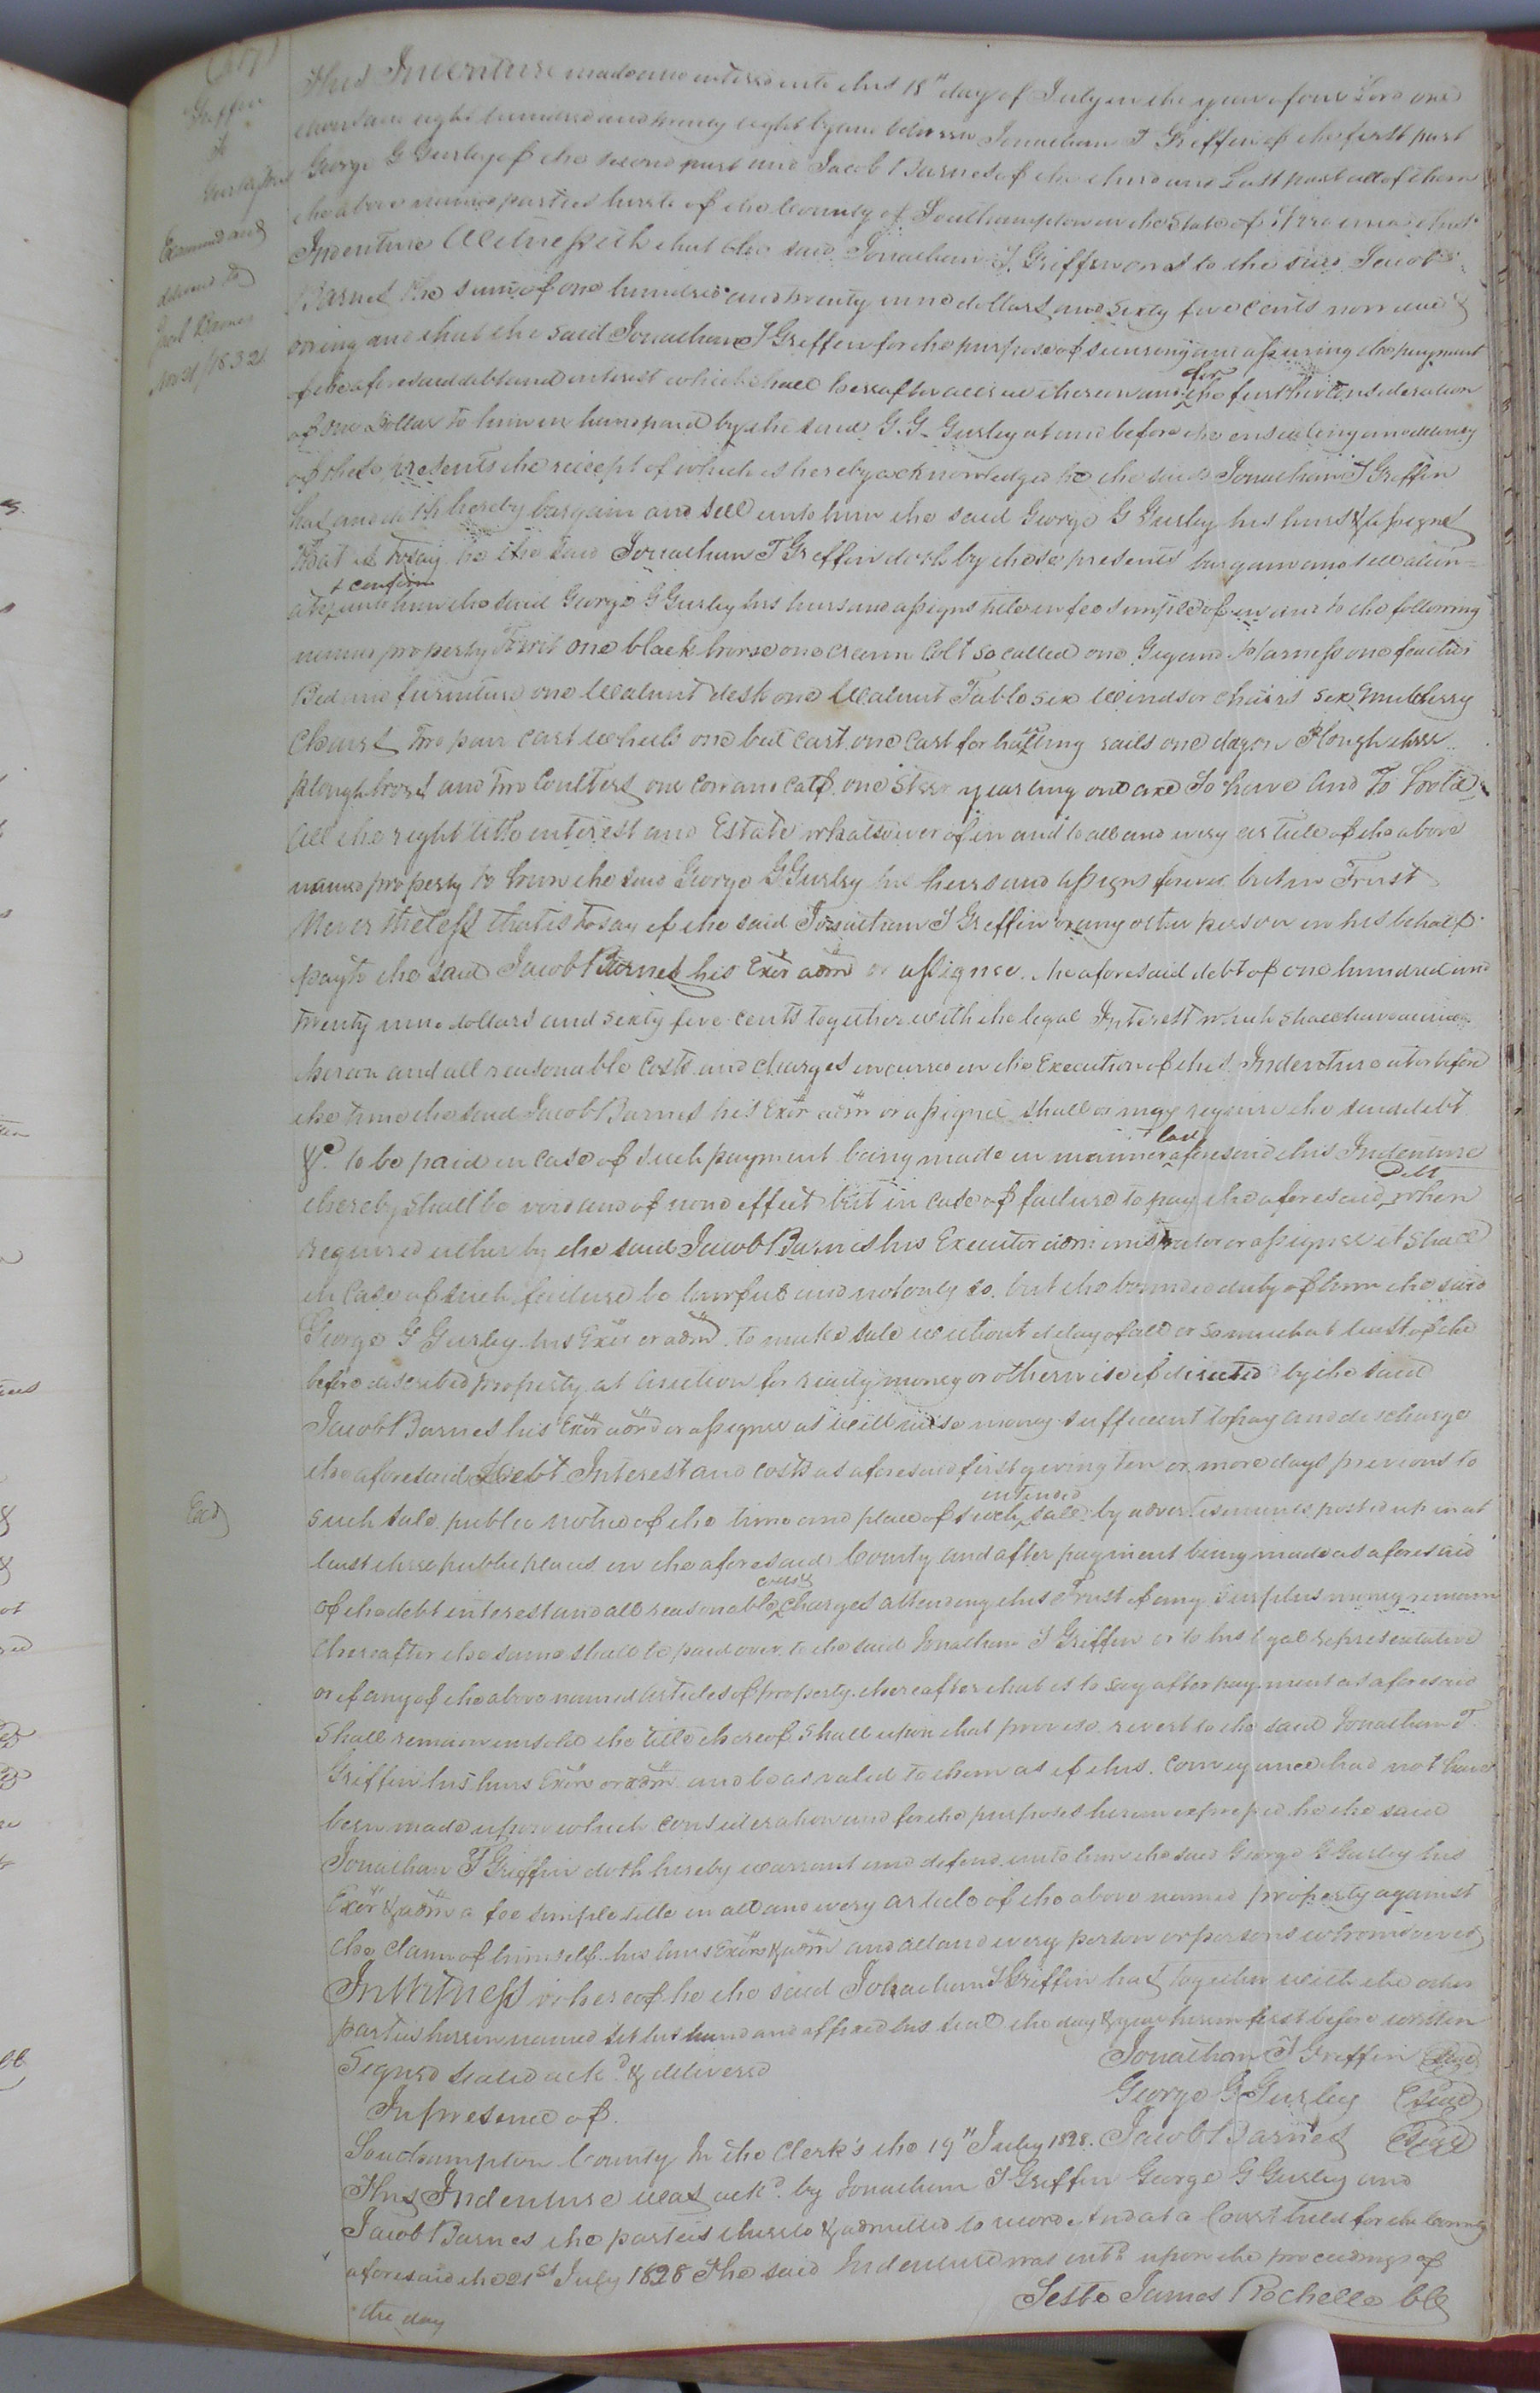 Griffin
to
Gurley &c
Examined and
delivered to
Jacob Barnes
Nov 21 / 1832
This Indenture made and entered into this 18th day of July in the year of our Lord one
thousand eight hundred and twenty eight by and between Jonathan T Griffin of the first part
George G Gurley of the second part and Jacob Barnes of the third and Last part all of them
the above named parties hereto of the County of Southampton in the State of Virginia that
Indenture Witnesseth that the said Jonathan T. Griffin owes to the said Jacob
Barnes the sum of one hundred and twenty nine dollars and sixty five cents now due &
owing and that the said Jonathan T Griffin for the purpose of securing and assuring the payment
of the aforesaid debt and interest which shall hereafter accrue thereon and for the further consideration
of one Dollar to him in hand paid by the said G. G. Gurley at and before the ensealing and delivery
of these presents the receipt of which is hereby acknowledged he the said Jonathan T Griffin
has and doth hereby bargain and sell unto him the said George G Gurley his heirs & assigns
that is to say he the said Jonathan T Griffin doth by these presents bargain and sell alien-
ate & confirm unto him the said George G Gurley his heirs and assigns title in fee simple of in and to the following
named property Towit one black horse one cream Colt so called one Gig and Harness one feather
Bed and furniture one Walnut desk one Walnut Table six Windsor chairs six Mulberry
Chairs two pair cart wheels one bed cart one cart for halling rails one dagon Plough three
plough hoes and two Coulters one cow and calf one steer yearling one axe To have And To hold
all the right title interest and Estate whatsoever of in and to all and every article of the above
named property to him the said George G Gurley his heirs and assigns forever but in Trust
Nevertheless that is to say if the said Jonathan T Griffin or any other person in his behalf
pay to the said Jacob Barnes his Exor adm or assignee the aforesaid debt of one hundred and
twenty nine dollars and sixty five cents together with the legal Interest which shall have accrued
thereon and all reasonable costs and charges incurred in the Execution of this Indenture at or before
the time the said Jacob Barnes his Exor adm or assignee shall or may require the said debt
&c. to be paid in case of such payment being made in manner last aforesaid this Indenture
thereby shall be void and of none effect but in case of failure to pay the aforesaid Debt when
required either by the said Jacob Barnes his Executor administrator or assignee it shall
in case of such failure be lawful and not only so but the bounded duty of him the said
George G Gurley his Exor or adm to make sale without delay of all or so much at least of the
before described property at Auction for ready money or otherwise if directed by the said
Jacob Barnes his Exor adm or assignee as will raise money sufficient to pay and discharge
the aforesaid Debt Interest and costs as aforesaid first giving ten or more days previous to
Exd
such sale public notice of the time and place of such intended sale by advertisements posted up in at
least three public places in the aforesaid County and after payment being made as aforesaid
of the debt interest and all reasonable costs & charges attending this Trust if any surplus money remain
thereafter the same shall be paid over to the said Jonathan T Griffin or to his legal representative
or if any of the above named articles of property thereafter that is to say after payment as aforesaid
shall remain unsold the title thereof shall upon that proviso revert to the said Jonathan T.
Griffin his heirs Exors or adm and be as valid to them as if this conveyance had not have
been made upon which consideration and for the purposes herein expressed he the said
Jonathan T Griffin doth hereby warrant and defend unto him the said George G Gurley his
Exor & adm a fee simple title in all and every article of the above named property against
the claim of himself his heirs Exors & adm and all and every person or persons whomsoever
In Witness whereof he the said Jonathan T Griffin hath together with the other
parties herein named set his hand and affixed his seal the day & year herein first before written
Signed sealed ackd & delivered
In presence of
Jonathan T Griffin Seal
George G Gurley Seal
Jacob Barnes Seal
Southampton County In the Clerk's the 19th July 1828.
This Indenture was ackd. by Jonathan T Griffin George G Gurley and
Jacob Barnes the parties thereto & admitted to record And at a Court held for the County
aforesaid the 21st July 1828 The said Indenture was entd upon the proceedings of
the day
Teste James Rochelle CC